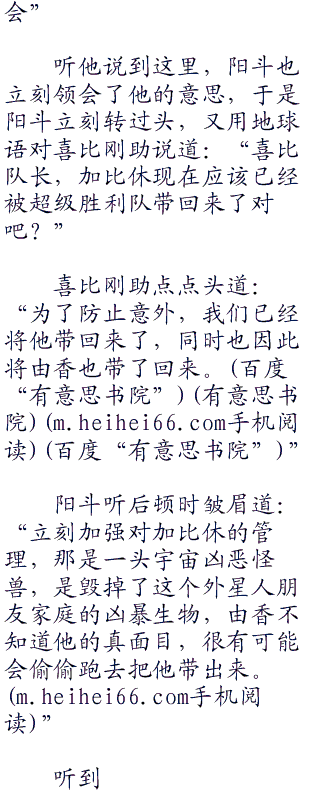 会”
听他说到这里，阳斗也
立刻领会了他的意思，于是
阳斗立刻转过头，又用地球
语对喜比刚助说道：“喜比
队长，加比休现在应该已经
被超级胜利队带回来了对
吧？”
喜比刚助点点头道：
“为了防止意外，我们已经
将他带回来了，同时也因此
将由香也带了回来。(百度
“有意思书院”)(有意思书
院)(m.heihei66.com手机阅
读)(百度“有意思书院”)”
阳斗听后顿时皱眉道：
“立刻加强对加比休的管
理，那是一头宇宙凶恶怪
兽，是毁掉了这个外星人朋
友家庭的凶暴生物，由香不
知道他的真面目，很有可能
会偷偷跑去把他带出来。
(m.heihei66.com手机阅
读)”
听到